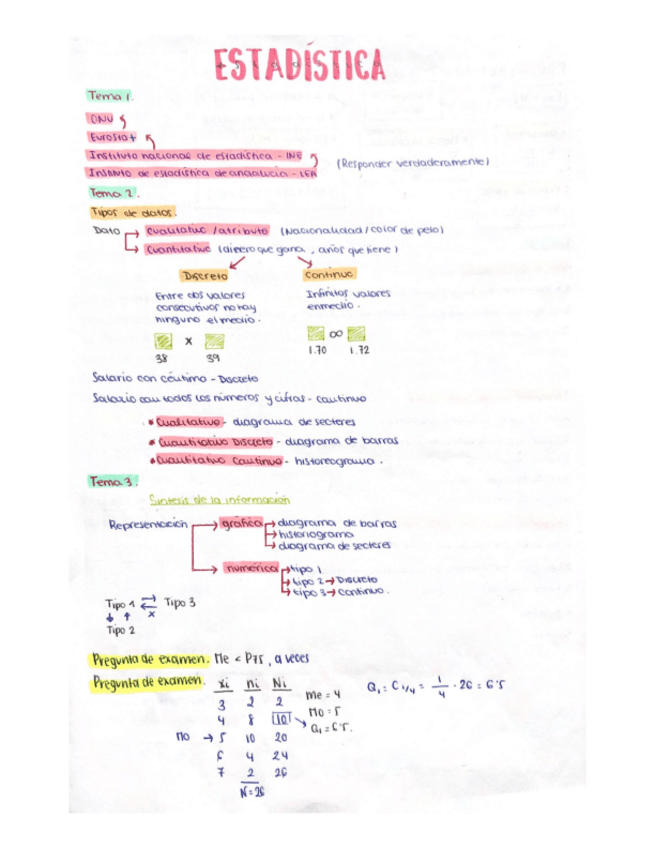 ESTADÍSTICA
Tema 1.
ONU
Eurostat
Instituto nacional de estadística - INE
(Responder verdaderamente)
Instituto de estadística de andalucía - IEA
Tema 2.
Tipos de datos.
Dato → Cualitativo / atributo (Nacionalidad / color de pelo)
→ Cuantitativo (dinero que gana, años que tiene)
Discreto Continuo
Entre dos valores Infinitos valores
consecutivos no hay enmedio.
ninguno el medio.
x ∞
38 39 1.70 1.72
Salario con céntimo - Discreto
Salario con todos los números y cifras - continuo
* Cualitativo - diagrama de secteres
* Cuantitativo Discreto - diagrama de barras
* Cuantitativo Continuo - historeograma.
Tema 3.
Síntesis de la información
Representación → gráfica → diagrama de barras
→ historiograma
→ diagrama de secteres
→ numérica → tipo 1
→ tipo 2 → Discreto
→ tipo 3 → Continuo.
Tipo 1 ⇄ Tipo 3
↓ ↑ x
Tipo 2
Pregunta de examen. Me < P75, a veces
Pregunta de examen. xi ni Ni
3 2 2 Me = 4 Q1 = C1/4 = 1/4 · 26 = 6'5
4 8 10 Mo = 5
Mo → 5 10 20 Q1 = 6'5.
6 4 24
7 2 26
N = 26